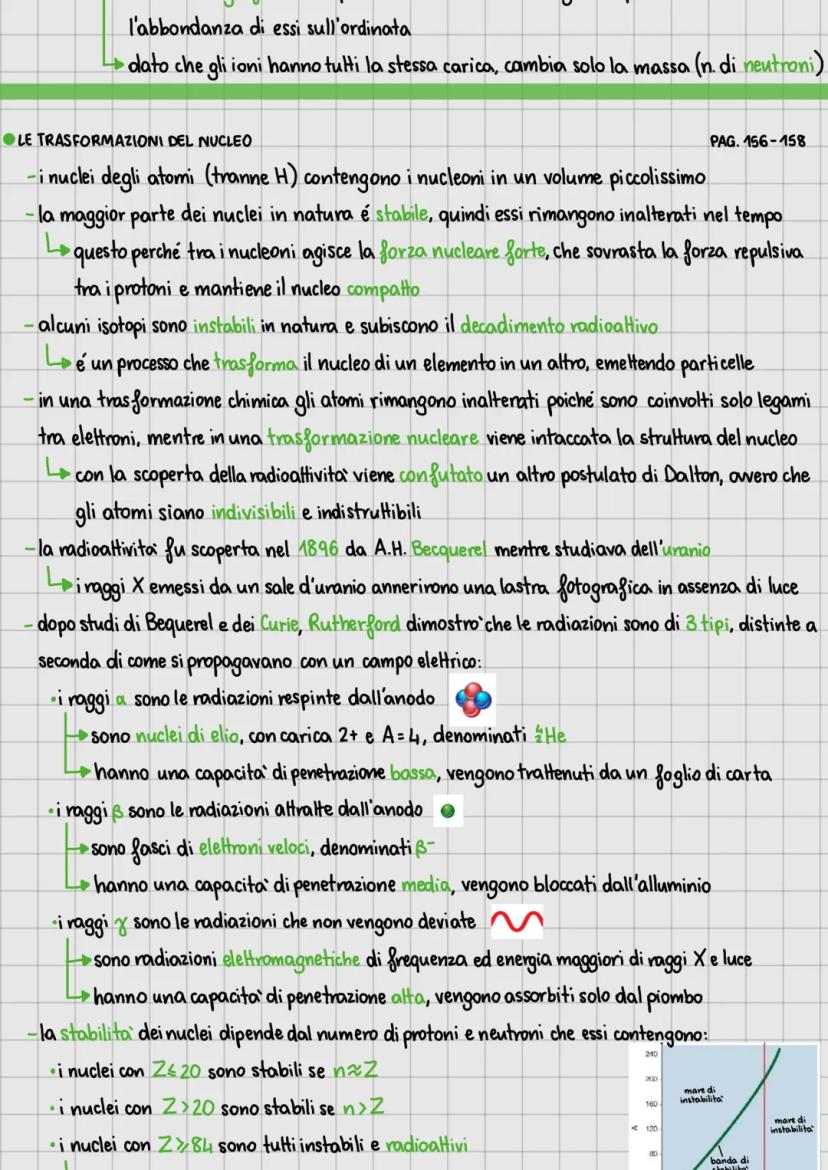 l'abbondanza di essi sull'ordinata
dato che gli ioni hanno tutti la stessa carica, cambia solo la massa (n. di neutroni)
LE TRASFORMAZIONI DEL NUCLEO PAG. 156-158
- i nuclei degli atomi (tranne H) contengono i nucleoni in un volume piccolissimo
- la maggior parte dei nuclei in natura é stabile, quindi essi rimangono inalterati nel tempo
questo perché tra i nucleoni agisce la forza nucleare forte, che sovrasta la forza repulsiva
tra i protoni e mantiene il nucleo compatto
- alcuni isotopi sono instabili in natura e subiscono il decadimento radioattivo
é un processo che trasforma il nucleo di un elemento in un altro, emettendo particelle
- in una trasformazione chimica gli atomi rimangono inalterati poiché sono coinvolti solo legami
tra elettroni, mentre in una trasformazione nucleare viene intaccata la struttura del nucleo
con la scoperta della radioattività viene confutato un altro postulato di Dalton, ovvero che
gli atomi siano indivisibili e indistruttibili
- la radioattività fu scoperta nel 1896 da A.H. Becquerel mentre studiava dell'uranio
i raggi X emessi da un sale d'uranio annerirono una lastra fotografica in assenza di luce
- dopo studi di Bequerel e dei Curie, Rutherford dimostrò che le radiazioni sono di 3 tipi, distinte a
seconda di come si propagavano con un campo elettrico:
• i raggi α sono le radiazioni respinte dall'anodo
sono nuclei di elio, con carica 2+ e A=4, denominati ⁴₂He
hanno una capacità di penetrazione bassa, vengono trattenuti da un foglio di carta
• i raggi β sono le radiazioni attratte dall'anodo
sono fasci di elettroni veloci, denominati β⁻
hanno una capacità di penetrazione media, vengono bloccati dall'alluminio
• i raggi γ sono le radiazioni che non vengono deviate
sono radiazioni elettromagnetiche di frequenza ed energia maggiori di raggi X e luce
hanno una capacità di penetrazione alta, vengono assorbiti solo dal piombo
- la stabilità dei nuclei dipende dal numero di protoni e neutroni che essi contengono:
• i nuclei con Z≤20 sono stabili se n≈Z
• i nuclei con Z>20 sono stabili se n>Z
• i nuclei con Z≥84 sono tutti instabili e radioattivi
240
200
160
A 120
80
mare di
instabilità
mare di
instabilità
banda di